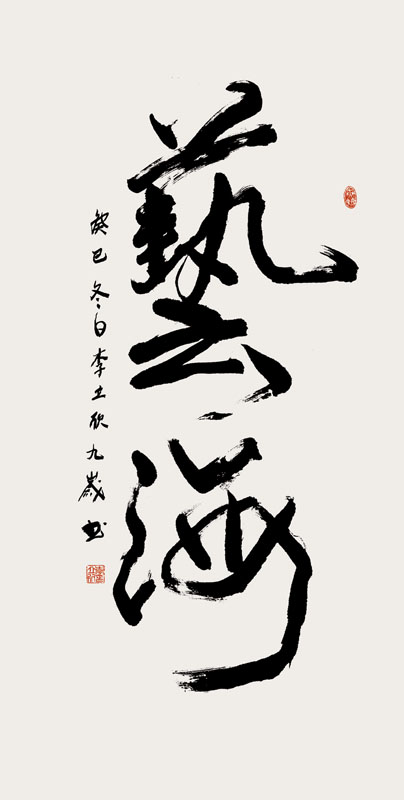 藝海
癸巳冬日李士欣九歲书